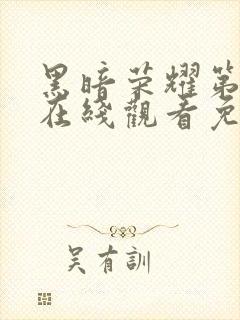 黑暗荣耀第
在綫觀看免
吴有訓